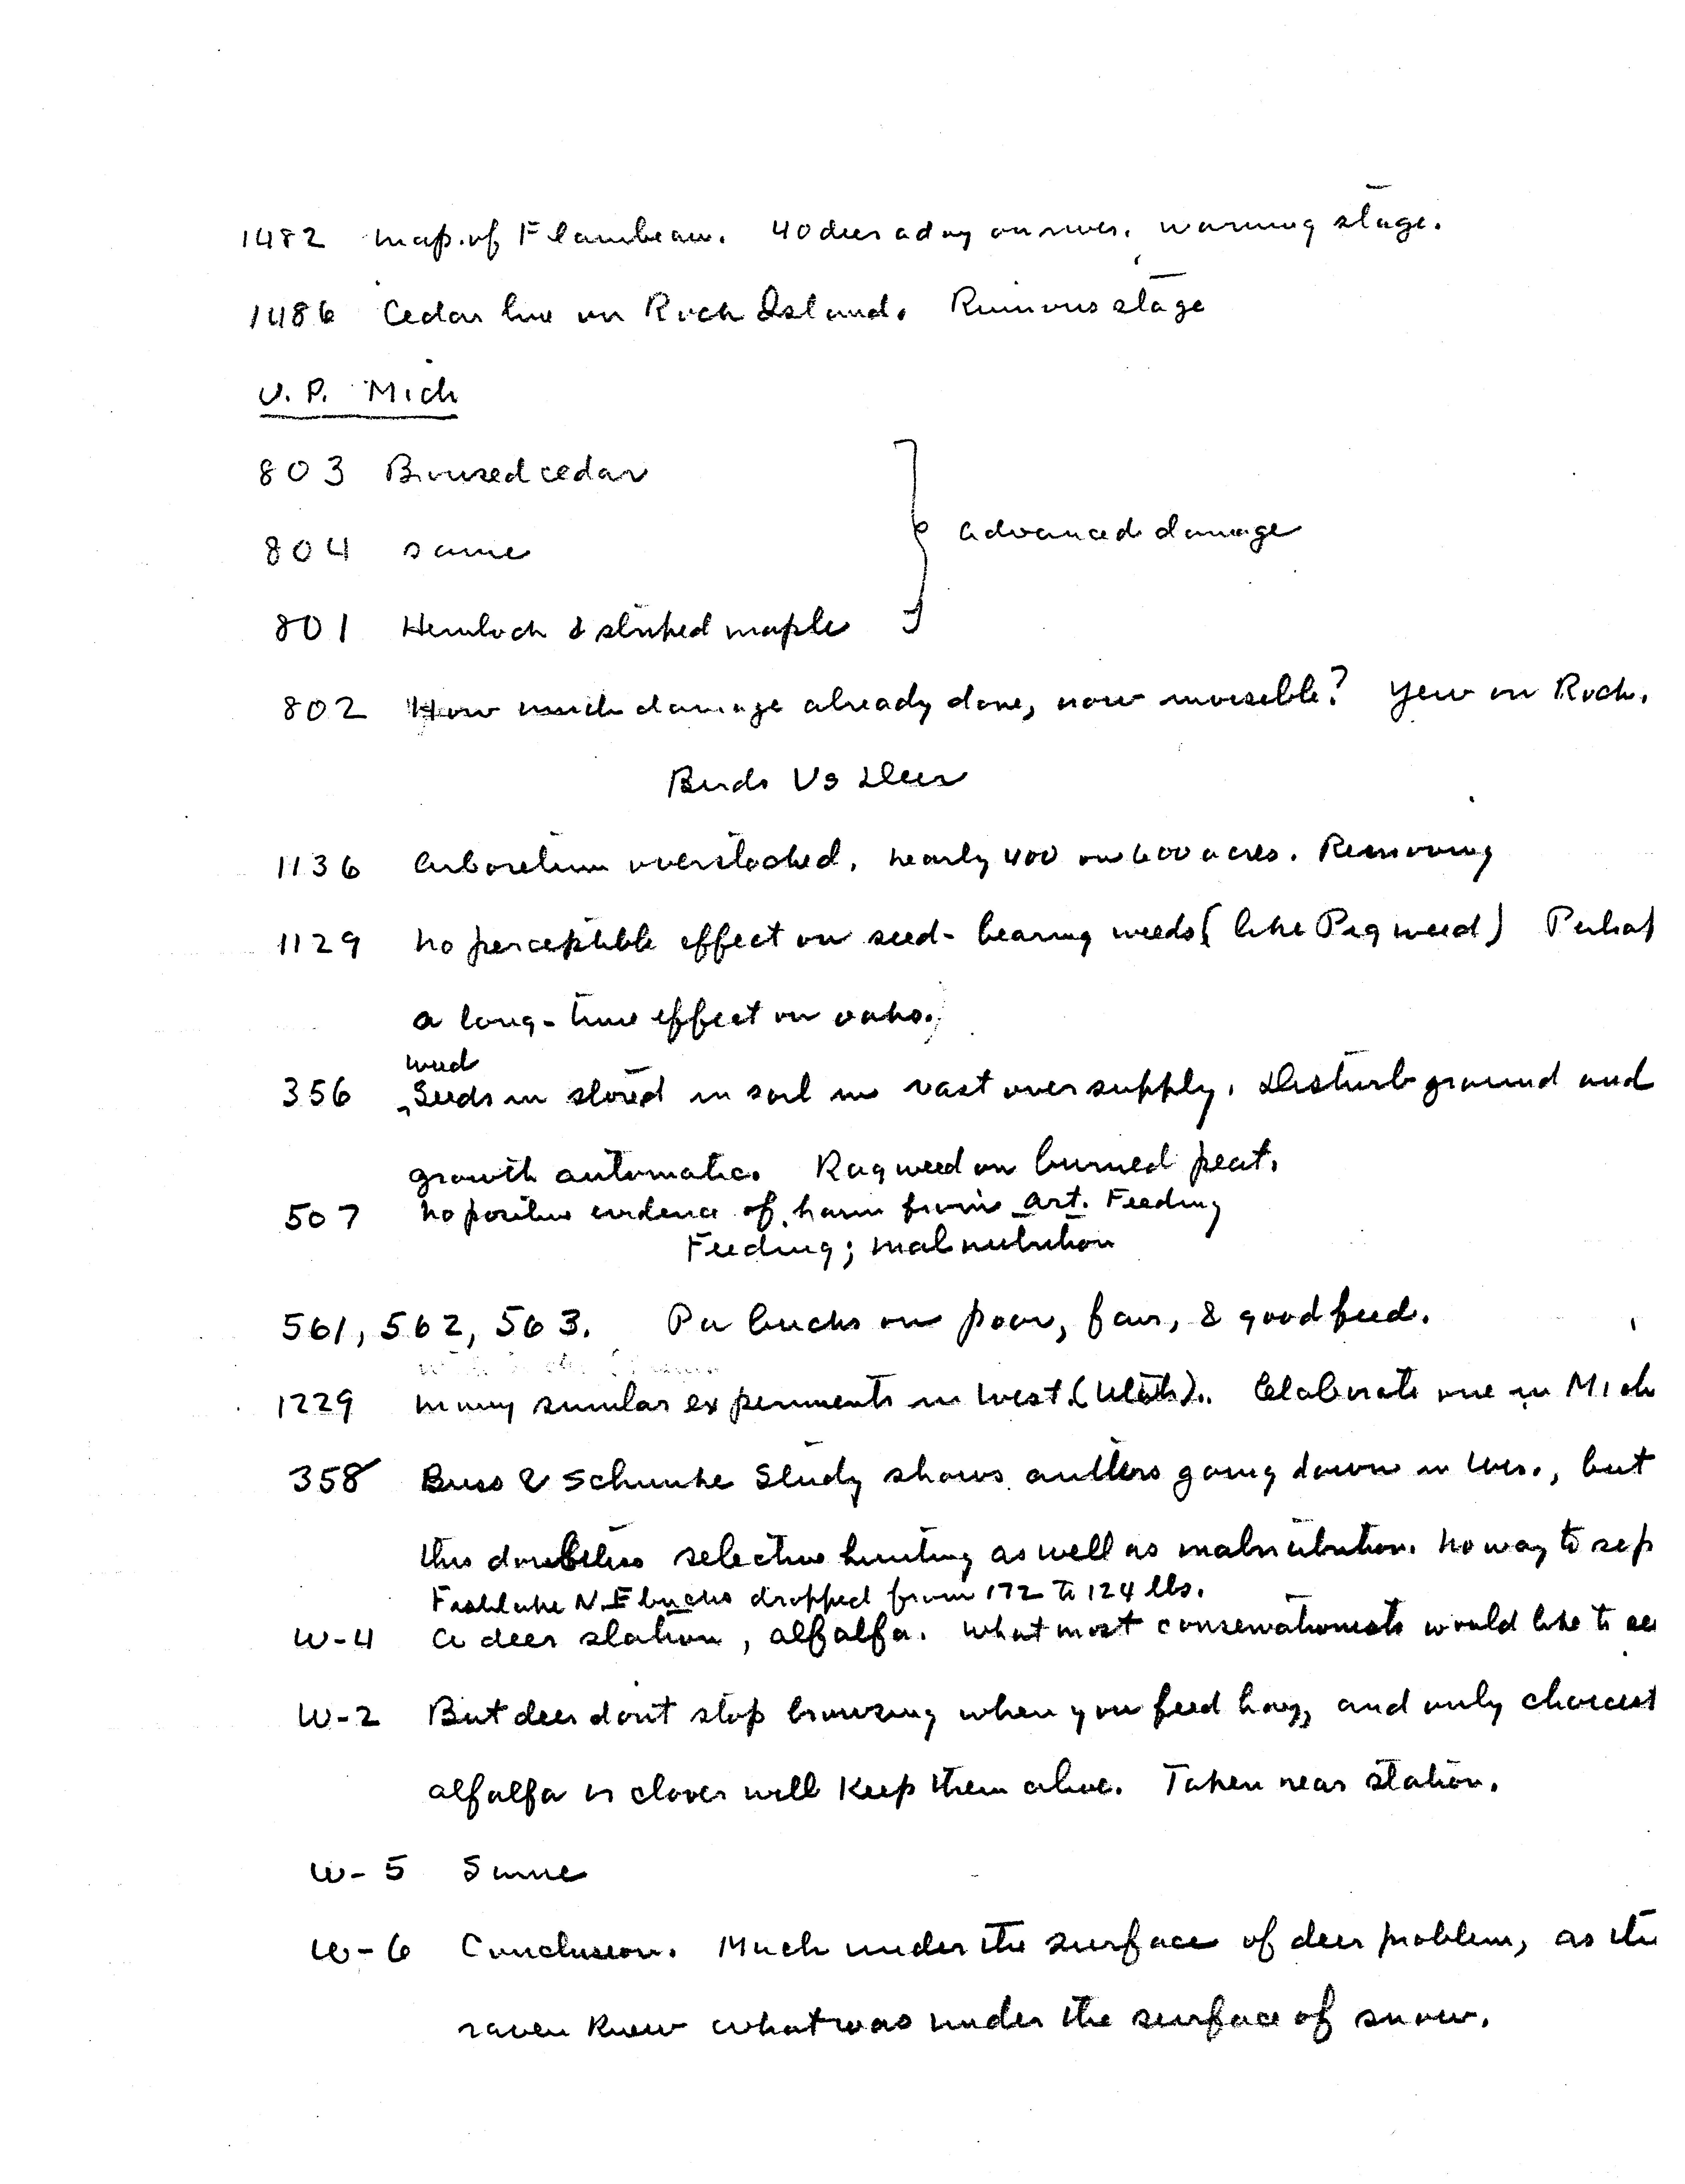 1482 Map of Flambeau. 40 deer a day on river. warning stage.
1486 Cedar line on Rock Island. Ruinous stage
U.P. Mich
803 Browsed cedar
804 same
advanced damage
801 Hemlock & striped maple
802 How much damage already done, now invisible? Yew on Rock.
Birds Vs Deer
1136 Arboretum overstocked, nearly 400 on 600 acres. Removing
1129 No perceptible effect on seed-bearing weeds (like Pigweed) Perhap
a long-time effect on oaks.
weed
356 Seeds in stored in soil in vast oversupply. Disturb ground and
growth automatic. Ragweed on burned peat.
507 No positive evidence of harm from art. Feeding
Feeding; malnutrition
561, 562, 563. Pa bucks on poor, fair, & good feed.
1229 Many similar experiments in West (Utah). Elaborate one in Mich
358 Buss & Schunke Study shows antlers going down in Wis., but
this doubtless selective hunting as well as malnutrition. No way to sep
Fishlake N.F bucks dropped from 172 to 124 lbs.
W-4 A deer station, alfalfa. What most conservationists would like to se
W-2 But deer dont stop browsing when you feed hay, and only choicest
alfalfa or clover will keep them alive. Taken near station.
W-5 Same
W-6 Conclusion. Much under the surface of deer problem, as the
raven knew what was under the surface of snow.